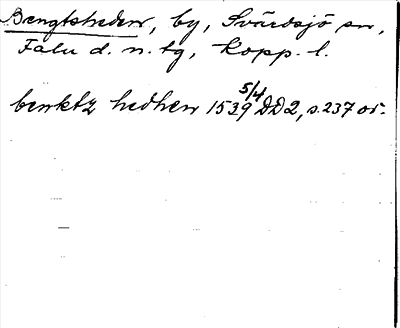 Bengtsheden, by, Svärdsjö sn,
Falu d. n. tg, Kopp. l.
benktz hedhen 1539 5/4 DD2, s. 237 or.